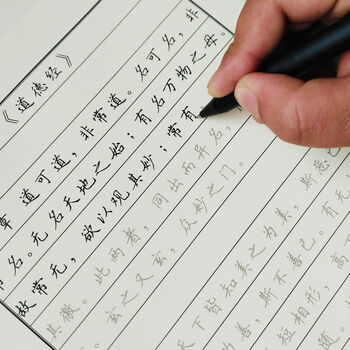 《道德经》
章 道可道，非常道。名可名，非
常名。无名天地之始；有名万物之母。
故常无，欲以观其妙；常有
其徼。此两者，同出而异名，
玄之又玄，众妙之门。
天下皆知美之为美，斯恶已
为善，斯不善已。有
短相形，高